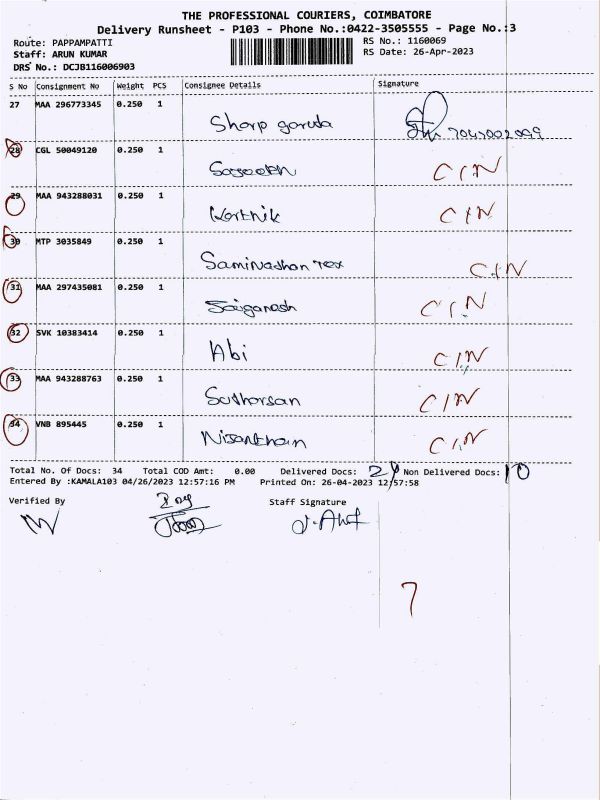 THE PROFESSIONAL COURIERS, COIMBATORE
Delivery Runsheet - P103 - Phone No.:0422-3505555 - Page No.:3
Route: PAPPAMPATTI
Staff: ARUN KUMAR
DRS No.: DCJB116006903
RS No.: 1160069
RS Date: 26-Apr-2023
S No Consignment No Weight PCS Consignee Details Signature
27 MAA 296773345 0.250 1 Sharp garuda
28 CGL 50049120 0.250 1 CIN
29 MAA 943288031 0.250 1 Karthik CIN
30 MTP 3035849 0.250 1 Saminathan Tex CIN
31 MAA 297435081 0.250 1 Saiganesh CIN
32 SVK 10383414 0.250 1 Abi CIN
33 MAA 943288763 0.250 1 Sutharsan CIN
34 VNB 895445 0.250 1 Nisanthan CIN
Total No. Of Docs: 34 Total COD Amt: 0.00 Delivered Docs: 24 Non Delivered Docs: 10
Entered By :KAMALA103 04/26/2023 12:57:16 PM Printed On: 26-04-2023 12:57:58
Verified By Staff Signature
7